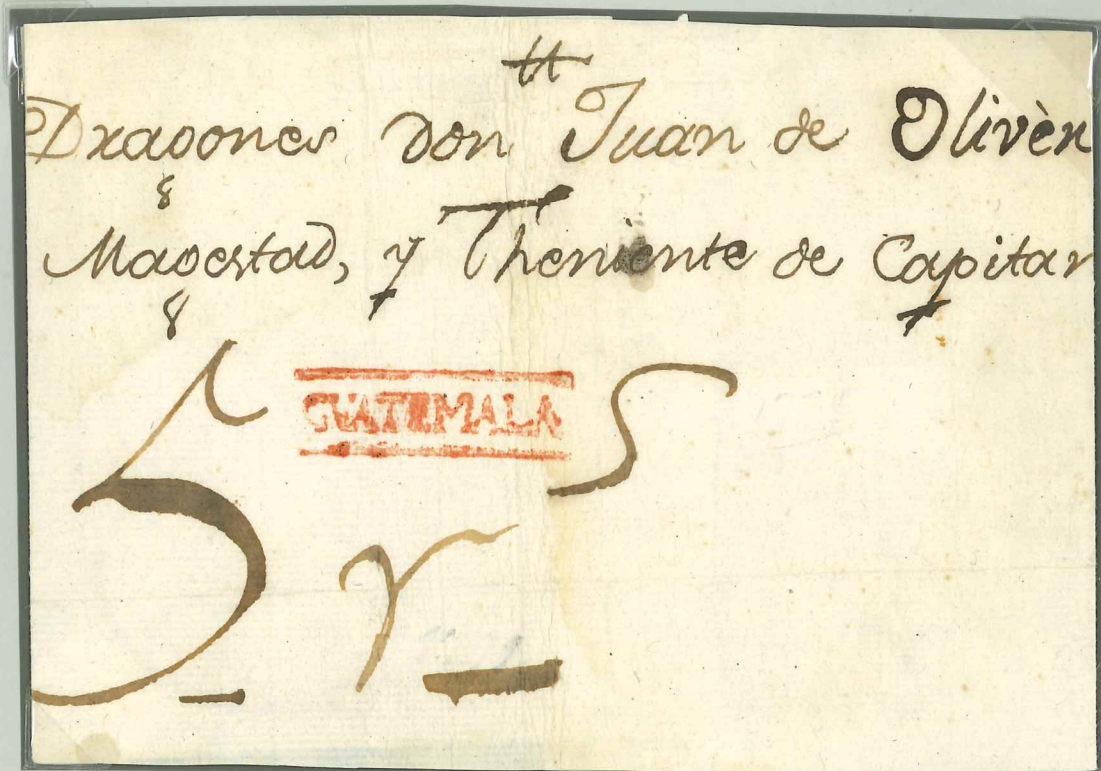 tt
Dragones Don Juan de Olivèr
Magestad, y Theniente de Capitan
GUATEMALA
5 r s